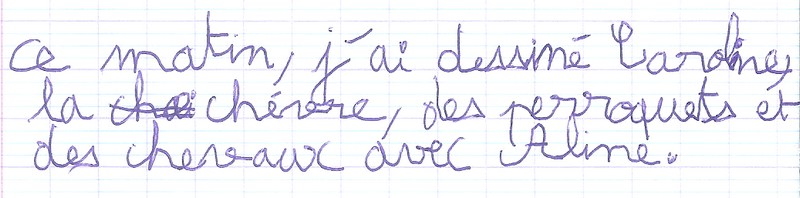 ce matin, j'ai dessiné Caroline,
la chévre, des perroquets et
des chevaux avec Aline.